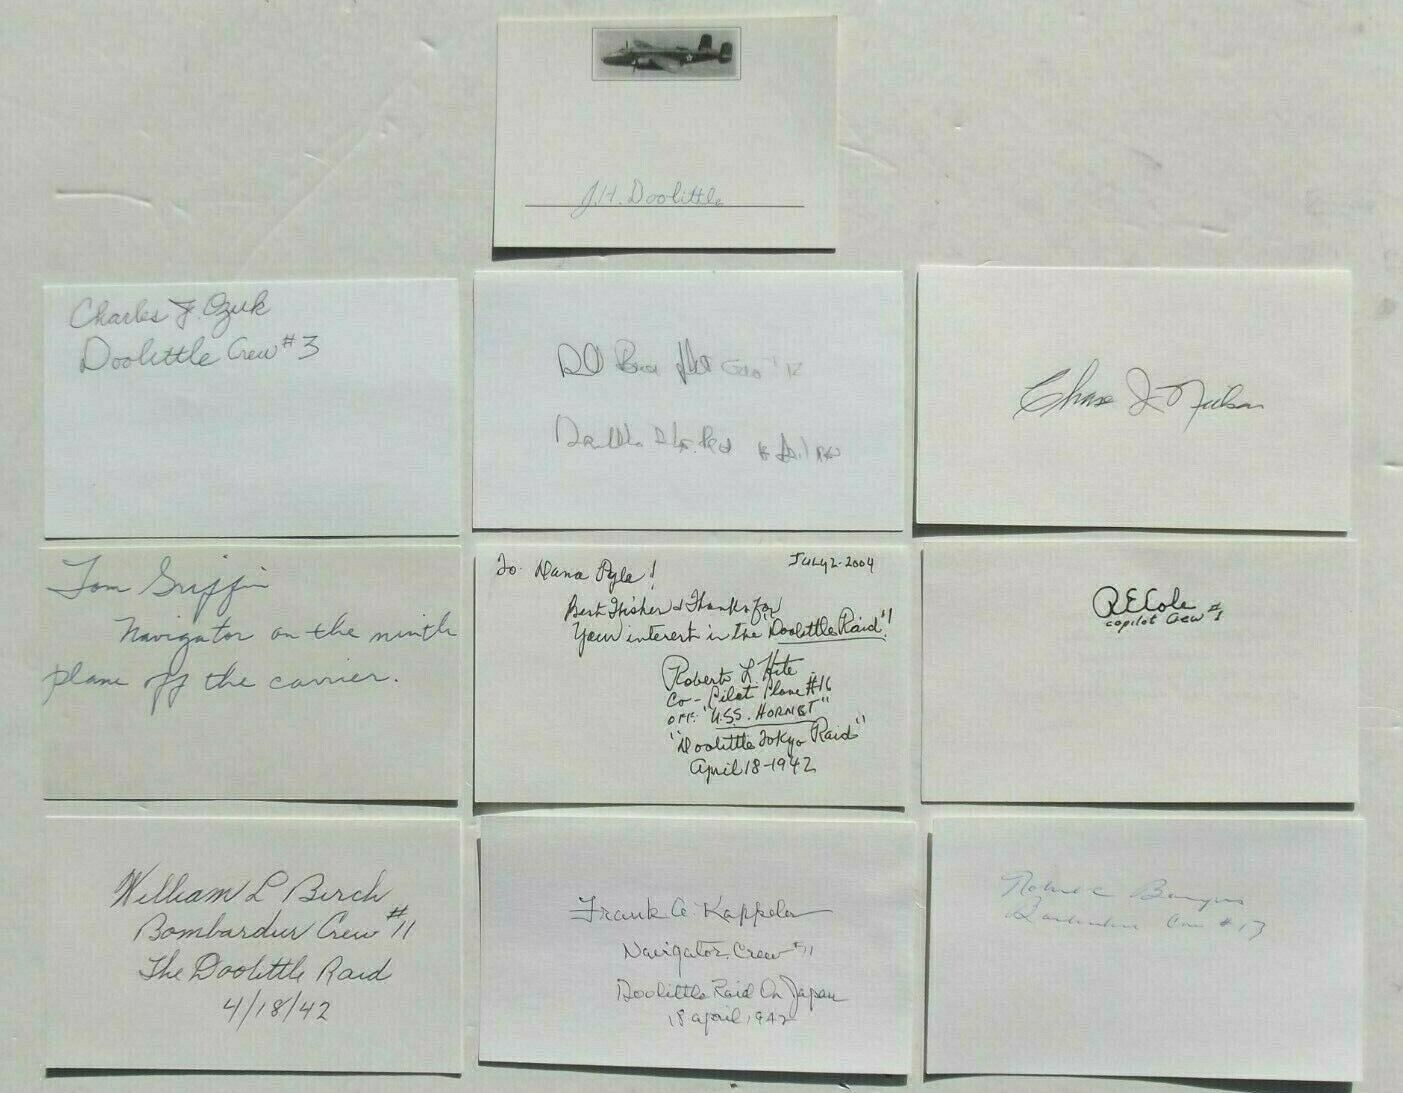 J.H. Doolittle
Charles J. Ozuk
Doolittle Crew #3
Bill Bower Pilot Crew 12
Doolittle
Chase J. Nielsen
Tom Griffin
Navigator on the ninth
plane off the carrier.
To: Dana Pyle! July 2-2004
Best Wishes & Thanks for
Your interest in the "Doolittle Raid"!
Robert L. Hite
Co-Pilot Plane #16
OFF: "U.S.S. HORNET"
"Doolittle Tokyo Raid"
April 18-1942
R E Cole
copilot Crew #1
William L Birch
Bombardier Crew #11
The Doolittle Raid
4/18/42
Frank A Kappeler
Navigator Crew #11
Doolittle Raid On Japan
18 April 1942
Crew #13